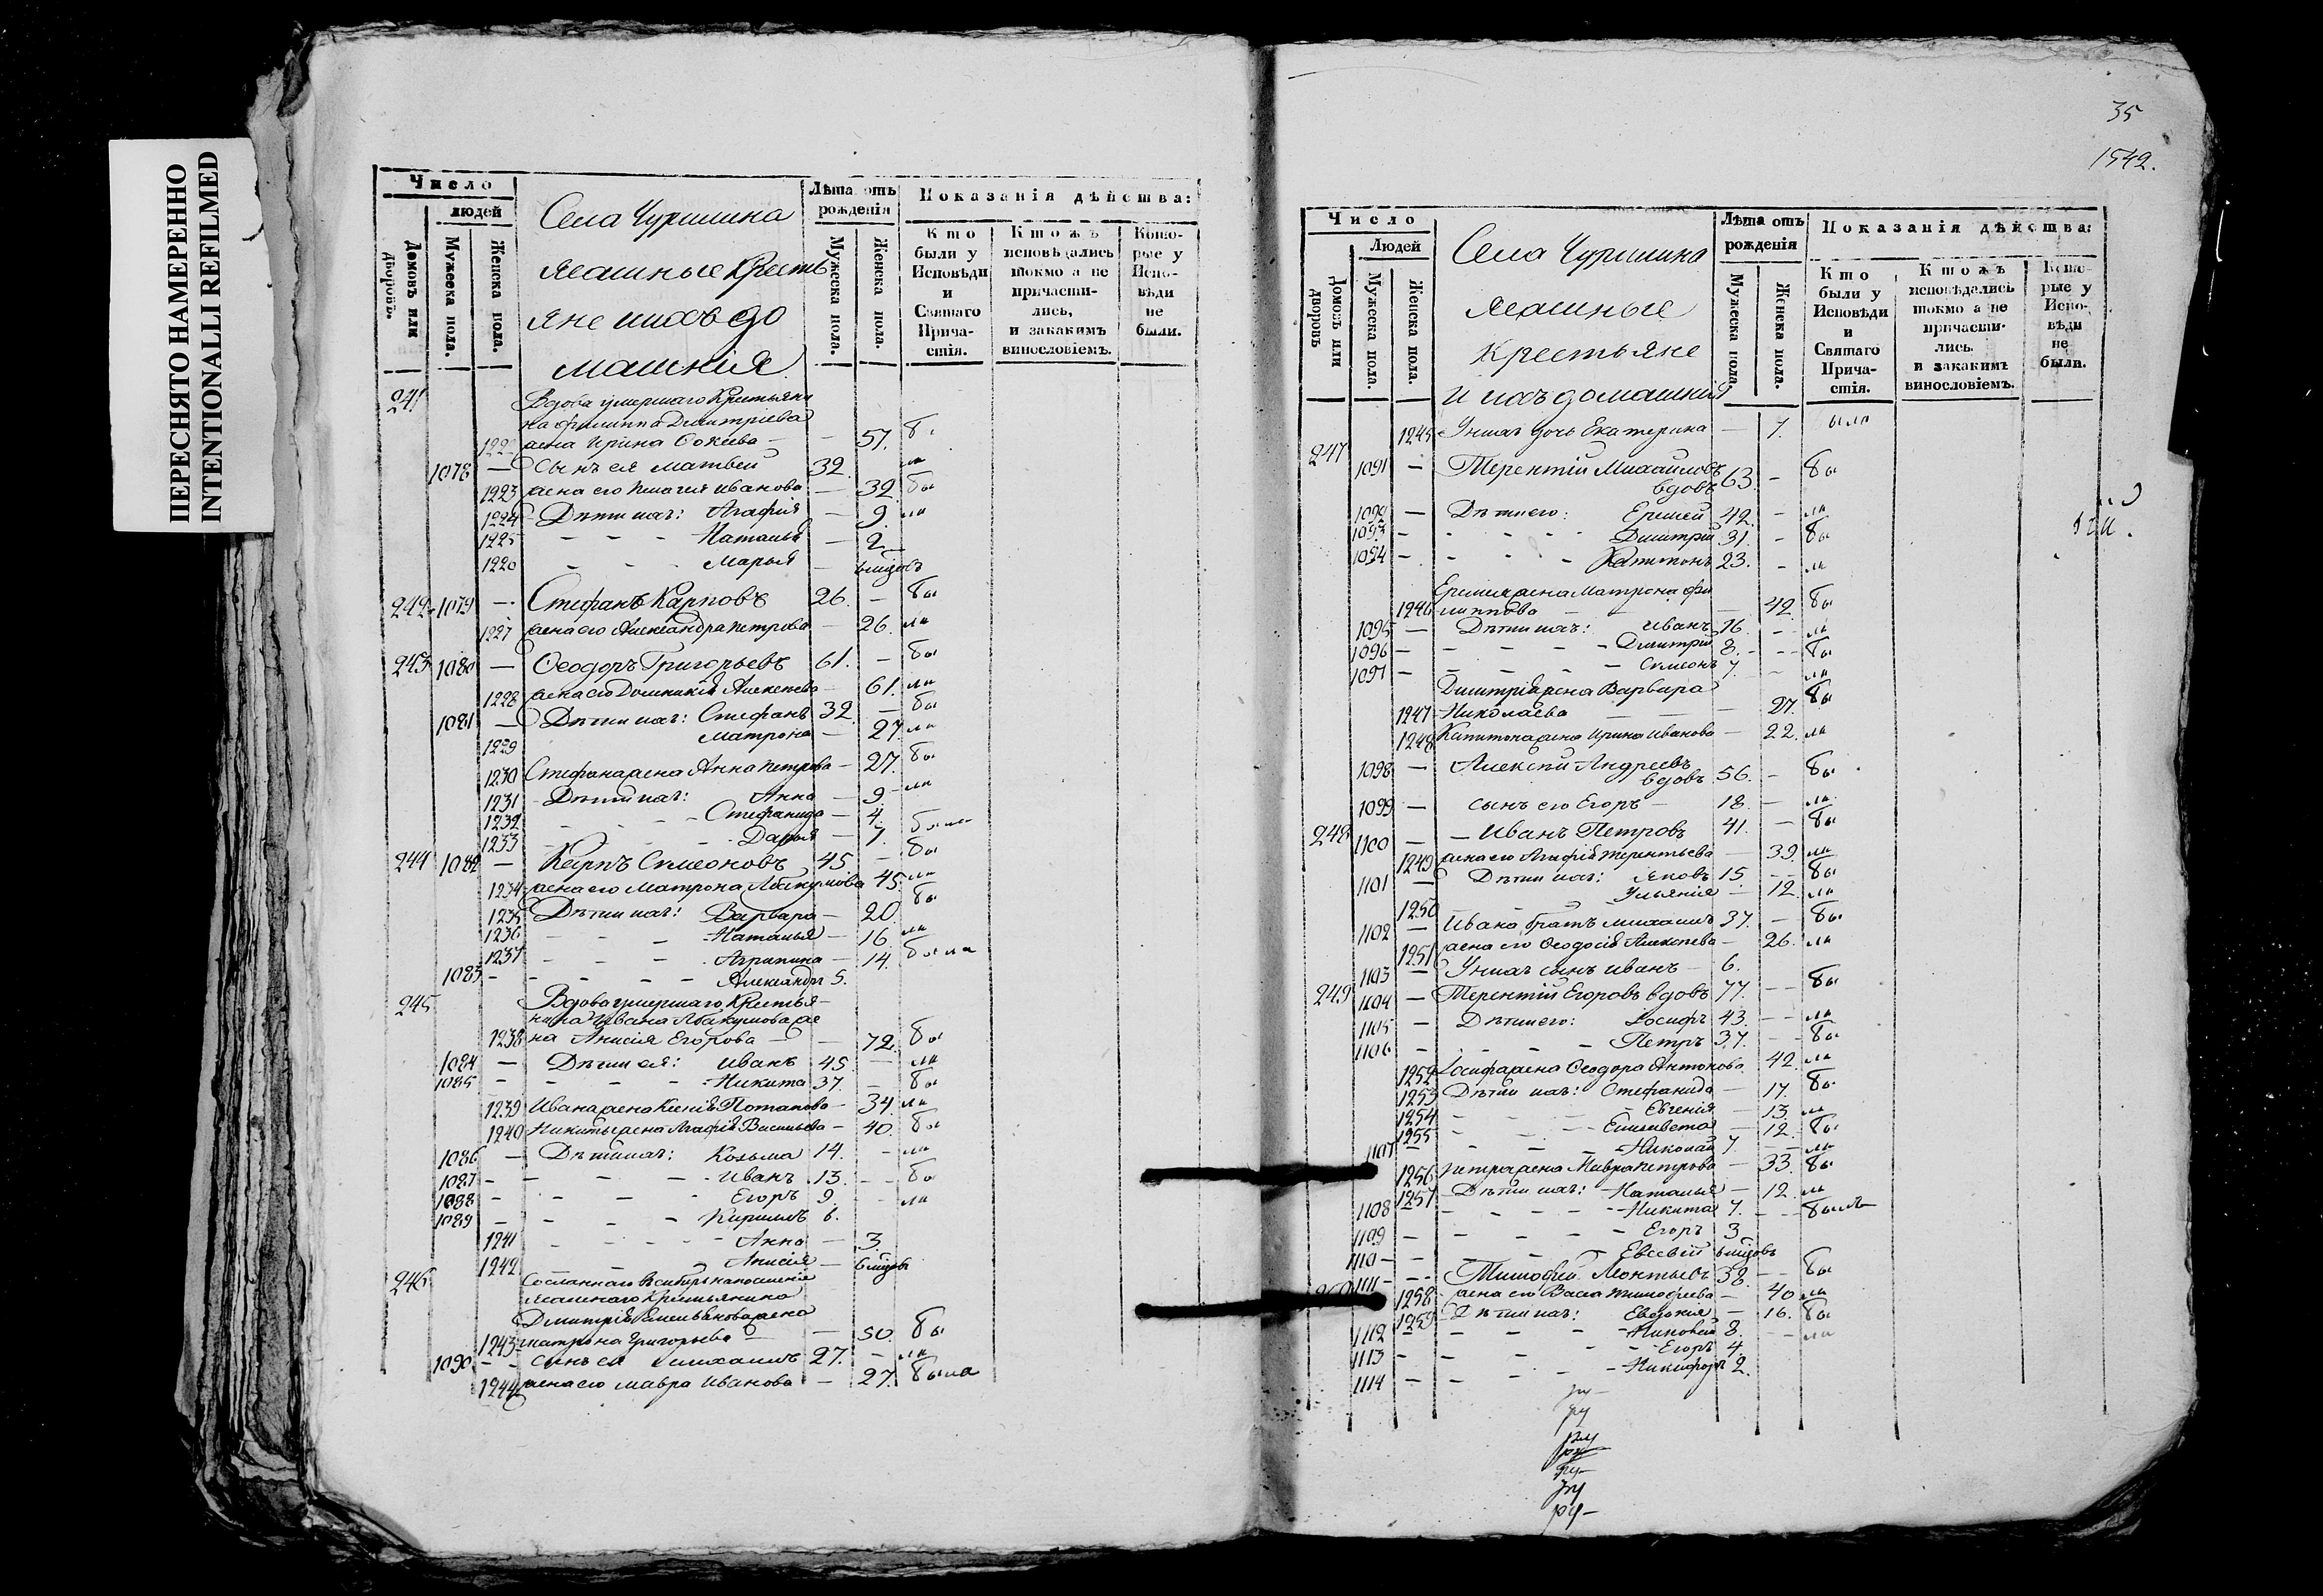 ПЕРЕСНЯТО НАМЕРЕННО
INTENTIONALLI REFILMED
Число
людей
Домовъ или дворовъ.
Мужеска пола.
Женска пола.
Села Чуришина
ясашные Кресть
яне ихъ до
машнія
Лѣта отъ рожденія
Мужеска пола.
Женска пола.
Показанія дѣйства:
Кто были у Исповѣди и Святаго Прича-стія.
Ктожъ исповѣдались токмо а не причасти-лись, и закакимъ винословіемъ.
Кото-рые у Испо-вѣди не были.
241 Вдова умершаго Крестьяни
на Филиппа Димитріева
жена Ирина Фокеева — — 57. б
1078 — Сынъ ея Матвей 32. ли
1223 жена его Пелагея Иванова — 32. бы
1224 Дѣти ихъ: Агафія — 9. ли
1225 - - - Наталья — 2
Марья —
242 1079 — Стефанъ Карповъ 26. — бы
1227 жена его Александра Петрова — 26. ли
243 1080 — Ѳеодоръ Григорьевъ 61. — бы
1228 жена его Домникія Алексеева — 61. ли
1081 — Дѣти ихъ: Стефанъ 32 — бы
1229 Матрона — 27. ли
1230 Стефана жена Анна Петрова — 27. бы
1231 Дѣти ихъ: Анна — 9. ли
1232 - - - Стефанида — 4.
1233 - - - Дарья — 1.
244 1082 — Карпъ Симеоновъ 45 — бы
1234 жена его Матрона Абакумова 45. ли
1235 Дѣти ихъ: Варвара — 20. бы
1236 - - - Наталья — 16. ли
1237 - - - Агрипина — 14. была
1083 - - - Александръ 5.
245 Вдова умершаго Крестья-
нина Ивана Абакумова же
1238 на Анисія Егорова — — 72. бы
1084 — Дѣти ея: Иванъ 45 — ли
1085 - - - Никита 37. — бы
1239 Ивана жена Ксенія Потапова — 34. ли
1240 Никиты жена Агафія Васильева — 40. бы
1086 — Дѣти ихъ: Козьма 14. - ли
1087 - - - Иванъ 13. - бы
1088 - - - Егоръ 9. - ли
1089 - - - Кирилъ 6.
1241 - - - Анна — 3.
1242 - - - Анисія —
246 Сосланнаго въ сибирь на поселеніе
ясашнаго Крестьянина
Димитрія жена
1243 Матрона Григорьева — — 50. бы
1090 - - сынъ ея Михаилъ 27. — ли
1244 жена его Мавра Иванова — 27. была
35
1542.
Число
Людей
Домовъ или дворовъ
Мужеска пола.
Женска пола.
Села Чуришина
ясашные
Крестьяне
и ихъ домашнія
Лѣта отъ рожденія
Мужеска пола.
Женска пола.
Показанія дѣйства:
Кто были у Исповѣди и Святаго Прича-стія.
Ктожъ исповѣдались токмо а не причасти-лись. и закакимъ винословіемъ.
Кото-рые у Испо-вѣди не были.
1245 У нихъ дочь Екатерина — 7. была
247 1091 — Терентій Михайловъ
вдовъ 63. - бы
1092 — Дѣти его: Еремей 42. - ли
1093 - - - Димитрій 31. - бы
1094 - - - Капитонъ 23. - ли
Еремея жена Матрона Фи
1246 липпова — — 42 бы
1095 — Дѣти ихъ: Иванъ 16. - ли
1096 - - - Димитрій 8. - бы
1097 - - - Симеонъ 7. - ли
Димитрія жена Варвара
1247 Николаева — — 27. бы
1248 Капитона жена Ирина Иванова — 22. ли
1098 — Алексій Андреевъ
вдовъ 56. - бы
1099 — сынъ его Егоръ — 18. — ли
248 1100 — Иванъ Петровъ 41. — бы
1249 жена его Агафія Терентьева — 39. ли
1101 — Дѣти ихъ: Яковъ 15 - - бы
1250 - - Ульянія — 12. ли
1102 — Ивана братъ Михаилъ 37. — бы
1251 жена его Ѳеодосія Алексеева — 26. ли
1103 — У нихъ сынъ Иванъ — 6.
249 1104 — Терентій Егоровъ вдовъ 77. — бы
1105 — Дѣти его: Іосифъ 43. - ли
1106 - - - Петръ 37. - бы
1252 Іосифа жена Ѳеодора Антонова 42. ли
1253 Дѣти ихъ: Стефанида — 17. бы
1254 - - - Евгенія — 13. ли
1255 - - - Елисавета — 12. бы
1107 - - - Николай 7. - ли
1256 Петра жена Мавра Петрова — 33. бы
1257 Дѣти ихъ: Наталья — 12. ли
1108 - - - Никита 7. - - былъ
1109 - - - Егоръ 3
1110 - - - Евсевій
1111 - - Тимофей Леонтьевъ 38. — бы
1258 жена его Васса Тимофеева — 40 ли
1259 Дѣти ихъ: Евдокія — 16. бы
1112 - - - 8. - - ли
1113 - - - Егоръ 4.
1114 - - - Никифоръ 2.
ру
ру
ру
ру
ру
ру